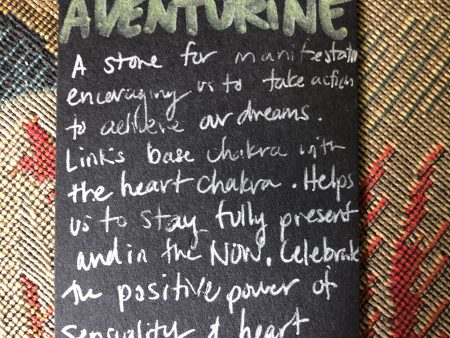 AVENTURINE
A stone for manifestation
encouraging us to take action
to achieve our dreams.
Links base chakra with
the heart chakra. Helps
us to stay fully present
and in the NOW. Celebrate
the positive power of
sensuality & heart